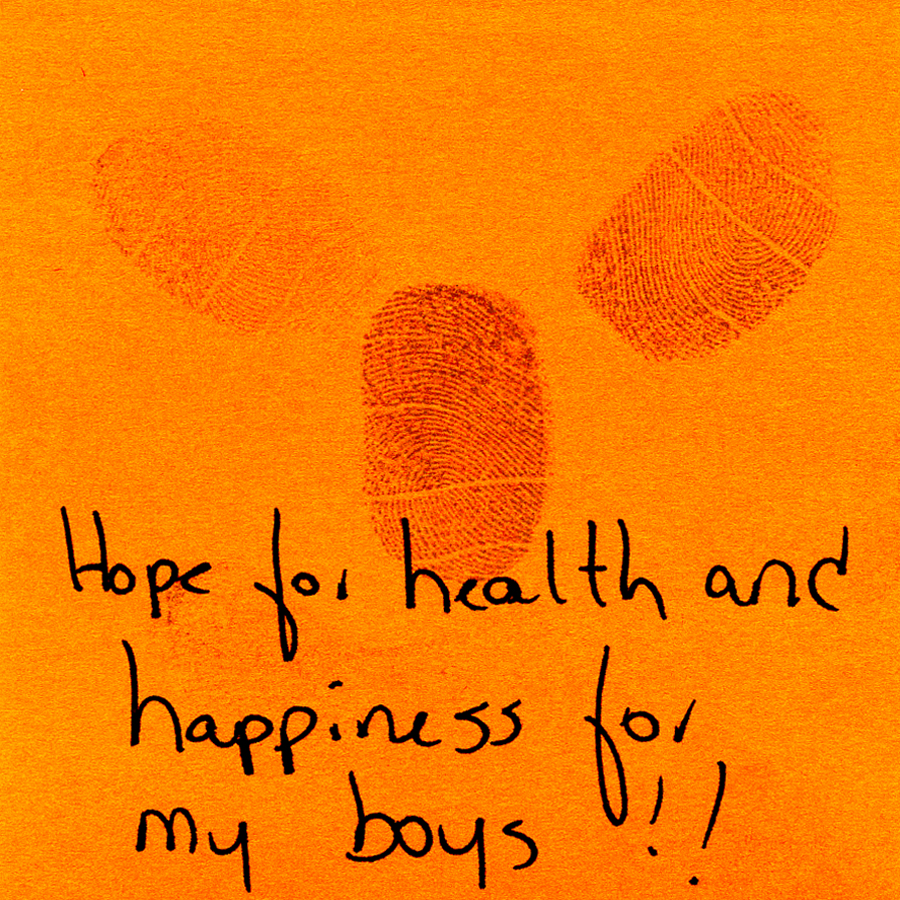 Hope for health and
happiness for
my boys !!